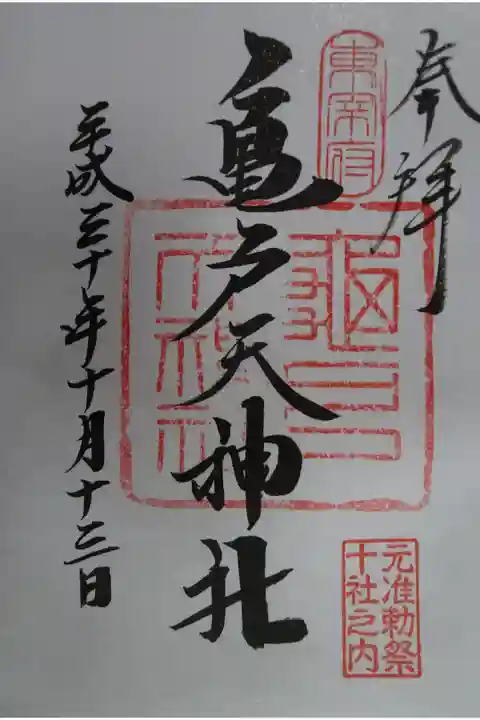 奉拝
東宰府
亀戸天神社
平成三十年十月十三日
元准勅祭
十社之内